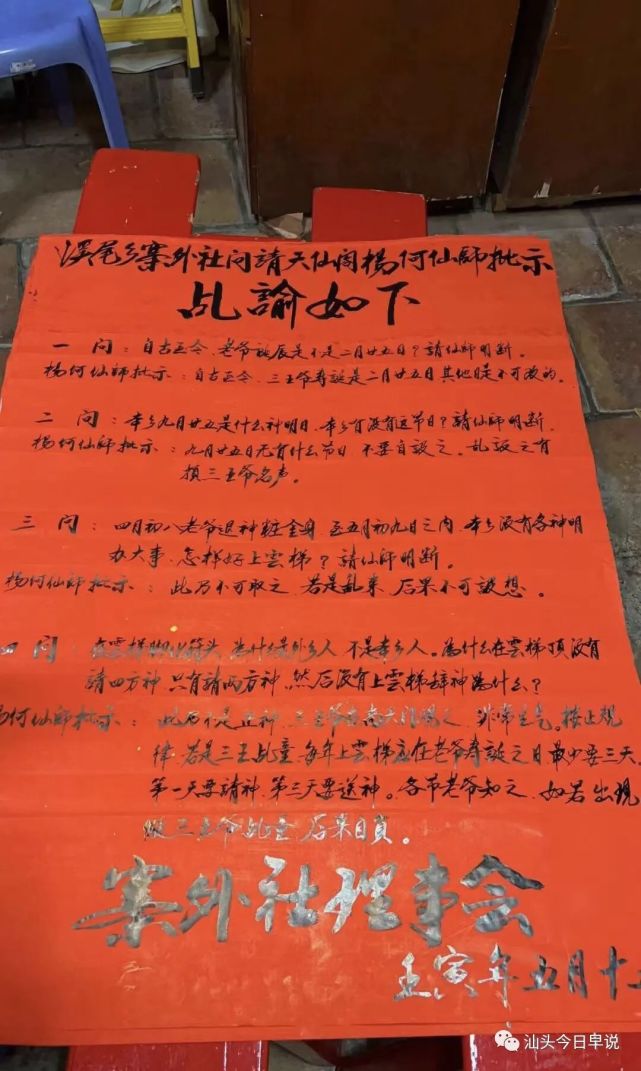 溪尾乡寨外社问請天仙阁楊何仙師批示
乩諭如下
一 問：自古至今、老爷誕辰是不是二月廿五日？請仙師明断。
楊何仙師批示：自古至今、三王爷寿誕是二月廿五日其他日是不可改的。
二 問：本乡九月廿五是什么神明日、本乡有没有这节日？請仙師明断、
楊何仙師批示：九月廿五日无有什么节日 不要自設之、乱設之有
損三王爷名声。
三 問：四月初八老爷退神粧金身 至五月初九日之内、本乡没有各神明
办大事、怎样好上雲梯？請仙師明断。
楊何仙師批示：此乃不可取之、若是乱来、后果不可設想。
四 問：在雲梯脚 为什么是外乡人 不是本乡人。為什么在雲梯頂没有
請四方神、只有請两方神、然后没有上雲梯辞神為什么？
楊何仙師批示：此乃不是正神、三王爷 之、非常生气。按上规
律、若是三王乩童、每年上雲梯应在老爷寿誕之日最少要三天、
第一天要請神、第三天要送神。各节老爷知之、如若出現
假三王爷乩童 后果自負。
寨外社理事会
壬寅年五月十
汕头今日早说